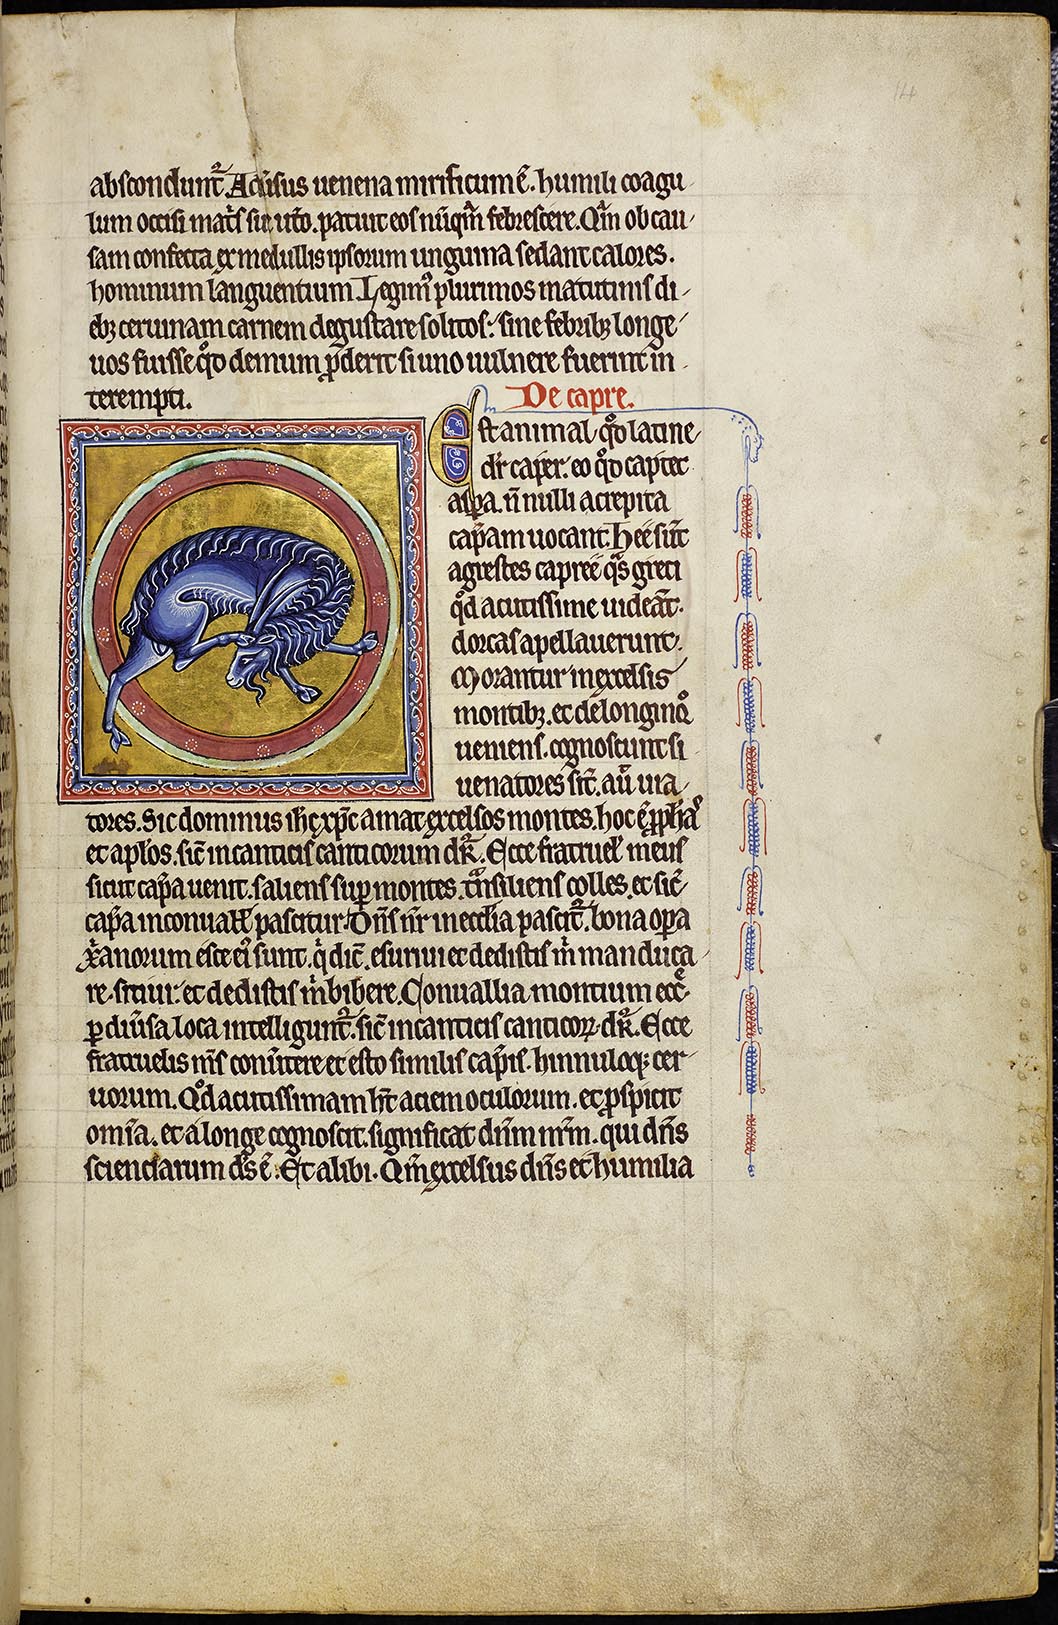 14
abscondunt᷑. Aduẽsus uenena mirificum ẽ. hinnuli coagu-
lum occisi mat̃s sui ut̃o. patuit eos nũqᷓm febrescere. Qm̃ ob cau-
sam confecta ex medullis ipsorum unguina sedant calores.
hominum languentium. Legim᷒ plurimos matutinis di-
ebꝫ ceruinam carnem degustare solitos. sine febribꝫ longe-
uos fuisse qᷘd demum ꝓderit si uno uulnere fuerint in-
terempti.
De capre.
Est animal qᷘd latine
dr̃ caper. eo qᷘd captet
aspa. ñ nulli a crepita
cap̃am uocant. Hee sũt
agrestes capreẽ qᷓs greci
qᷘd acutissime uideãt.
dorcas apellauerunt.
Morantur in excelsis
montibꝫ. et de longinqᷘ
ueniens. cognoscunt si
uenatores sit̃. aũ uia-
tores. Sic dominus ih̃c xp̃c amat excelsos montes. hoc ẽ ꝓph̃as
et ap̃los. sic̃ in canticis canticorum dr̃. Ecce fratruel̃ meus
sicut cap̃a uenit. saliens suꝑ montes. tᷓnsiliens colles. et sic̃
cap̃a in conuall̃ pascitur. Dñs nr̃ in ecc̃lia pascit᷑. bona oꝑa
xp̃anorum esce ei᷒ sunt. qͥ dic̃. esuriui et dedistis m̃ manduca-
re. sitiui. et dedistis m̃ bibere. Conuallia montium ecc̃e
ꝑ diũsa loca intelligunt᷑. sic̃ in canticis canticoꝝ dr̃. Ecce
fratruelis m̃s conũtere et esto similis cap̃is. hinnulocꝫ cer-
uorum. Qᷘd acutissimam ht̃ aciem oculorum. et ꝓspicit
omĩa. et a longe cognoscit. significat dñm nr̃m. qui dñs
scienciarum ds̃ ẽ. Et alibi. Qm̃ excelsus dñs et humilia